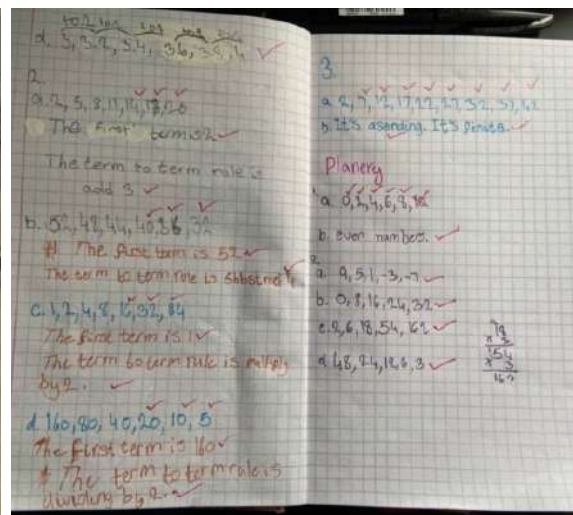 d. 3, 3.2, 3.4, 3.6, 3.8, 4
2.
a. 2, 5, 8, 11, 14, 17, 20
The first term is 2
The term to term rule is
add 3
b. 52, 48, 44, 40, 36, 32
The first term is 52
The term to term rule is substract
c. 1, 2, 4, 8, 16, 32, 64
The first term is 1
The term to term rule is multiply
by 2.
d. 160, 80, 40, 20, 10, 5
The first term is 160
The term to term rule is
dividing by 2.
3.
a. 2, 7, 12, 17, 22, 27, 32, 37, 42
b. It's asending. It's finite.
Planery
a. 0, 2, 4, 6, 8, 10
b. even numbers.
2
a. 9, 5, 1, -3, -7
b. 0, 8, 16, 24, 32
c. 2, 6, 18, 54, 162
d. 48, 24, 12, 6, 3
18
x 3
54
x 3
162